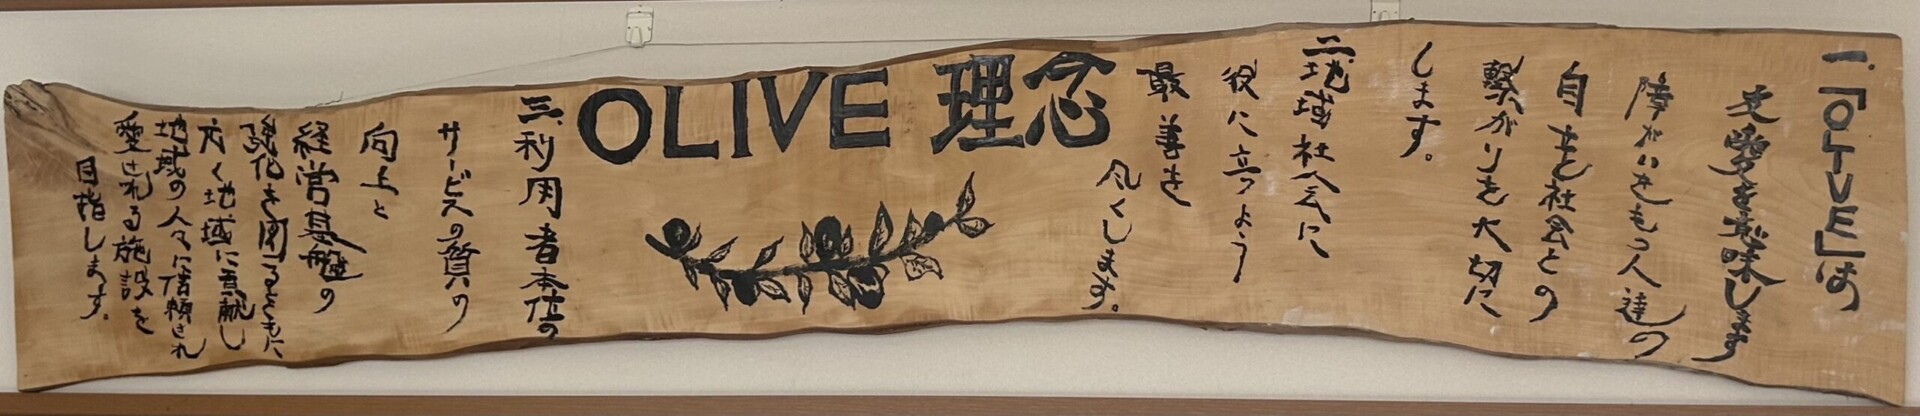 OLIVE 理念
一.「OLIVE」は
友愛を意味します
障がいをもつ人達の
自立と社会との
繋がりを大切に
します。
二、地域社会に
役に立つよう
最善を
尽くします。
三、利用者本位の
サービスの質の
向上と
経営基盤の
強化を図るともに
広く地域に貢献し
地域の人々に信頼され
愛される施設を
目指します。